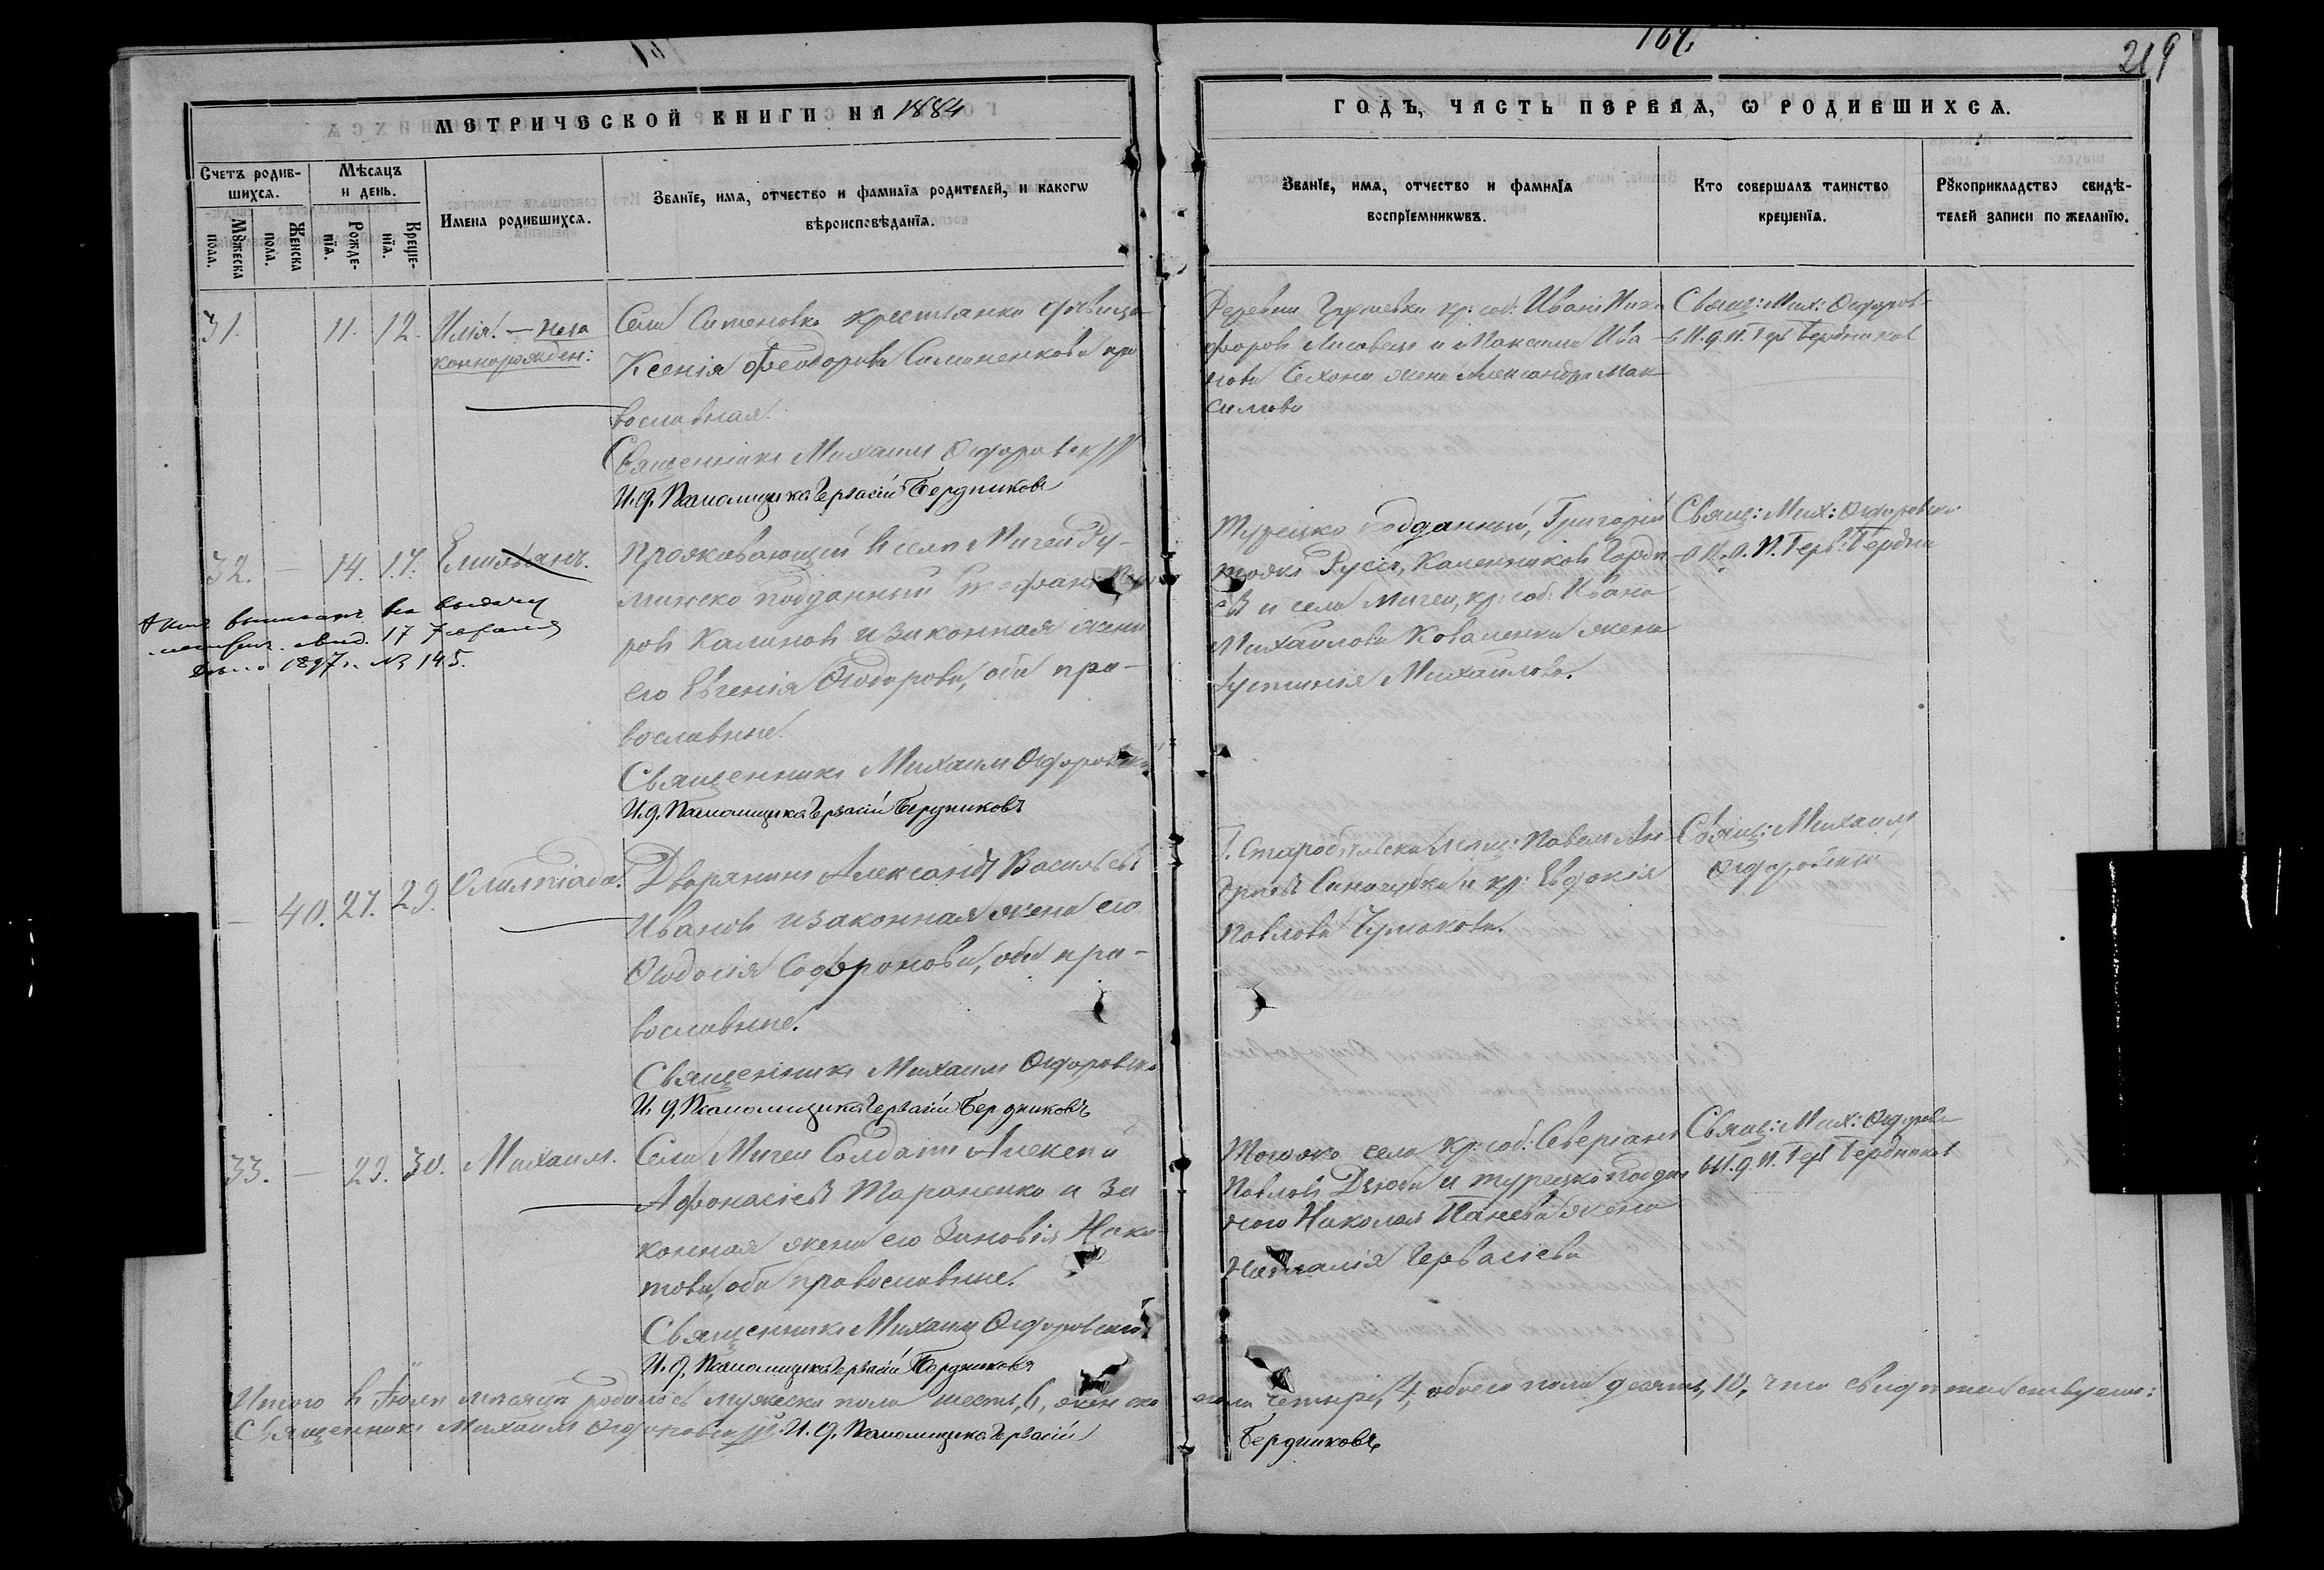 169.
219
МЕТРИЧЕСКОЙ КНИГИ НА 1884
ГОДЪ, ЧАСТЬ ПЕРВАѦ, Ѡ РОДИВШИХСѦ.
Счетъ родив-
шихсѧ.
Мꙋжеска
пола.
Женска
пола.
Мѣсѧцъ
и день.
Рожде-
нїѧ.
Креще-
нїѧ.
Имена родившихсѧ.
Званїе, имѧ, отчество и фамилїѧ родителей, и какогѡ
вѣроисповѣданїѧ.
Званїе, имѧ, отчество и фамилїѧ
воспрїемникѡвъ.
Кто совершалъ таинство
крещенїѧ.
Рꙋкоприкладство свидѣ-
телей записи по желанїю.
31. 11. 12. Илія. – Неза
коннорожден:
Села Ситеновки крестьянка дѣвица
Ксенія Феодорова Симоненкова пра
вославная.
Священникъ Михаилъ Ѳедоровскій
И. д. Псаломщика Гервасій Бердниковъ
Деревни кр: соб: Иванъ Ники
форовъ Лисовецъ и Максима Ива
нова Чехони жена Александра Мак
симова
Свящ: Мих: Ѳедоров-
И. д. П. Герв Бердниковъ
32. – 14. 17. Емиліанъ.
Проживающій въ селѣ Мигеи Ру-
минско подданный Стефанъ
ровъ Калиновъ и законная жена
его Евгенія Ѳеодорова, оба пра-
вославные.
Священникъ Михаилъ Ѳедоровскій
И. д. Псаломщика Гервасій Бердниковъ
выписанъ на выдачу
17 Февраля
1897 г. № 145.
Турецко подданный, Григорій
Русь, Каменниковъ
въ и села Мигеи, кр: соб: Ивана
Михайлова Коваленка жена
Іустинія Михайлова.
Свящ: Мих: Ѳедоровскій
И. д. П. Герв: Бердни
– 40. 27. 29. Олимпіада.
Дворянинъ Александръ Васильевъ
Ивановъ и законная жена его
Ѳеодосія Софронова, оба пра-
вославные.
Священникъ Михаилъ Ѳедоровскій
И. д. Псаломщика Гервасій Бердниковъ
Г. Старобѣльска мѣщ: Павелъ Ан
дреевъ и кр: Евдокія
Павлова Чумакова.
Свящ: Михаилъ
Ѳедоровскій
33. – 29. 30. Михаилъ.
Села Мигеи Солдатъ Алексѣй
Афонасіевъ Тараненко и за
конная жена его Зиновія Ники
това, оба православные.
Священникъ Михаилъ Ѳедоровскій
И. д. Псаломщика Гервасій Бердниковъ
Того же села кр: соб: Северіанъ
Павловъ Дзюба и турецко поддан
ного Николая Панева жена
Наталія Гервасіева
Свящ: Мих: Ѳедоровс
И. д. П. Герв Бердниковъ
Итого въ Іюлѣ мѣсяцѣ родилось мужеска пола шесть, 6, женска пола четыре, 4, обоего пола десять, 10, что свидѣтельствуемъ:
Священникъ Михаилъ Ѳедоровскій. И. д. Псаломщика Гервасій Бердниковъ